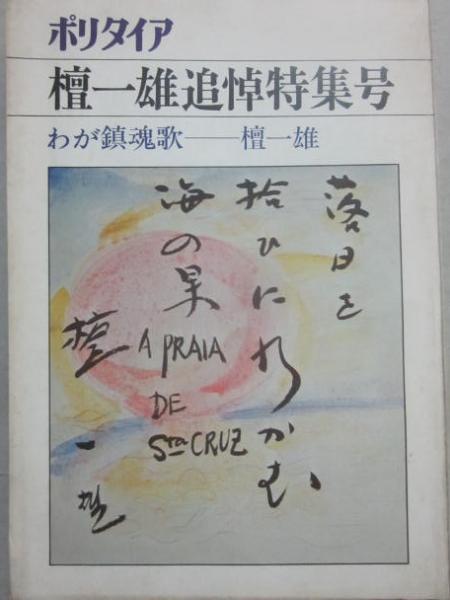 ポリタイア
檀一雄追悼特集号
わが鎮魂歌――檀一雄
落日を
拾ひに行かむ
海の果
檀一雄
A PRAIA
DE
Sta CRUZ